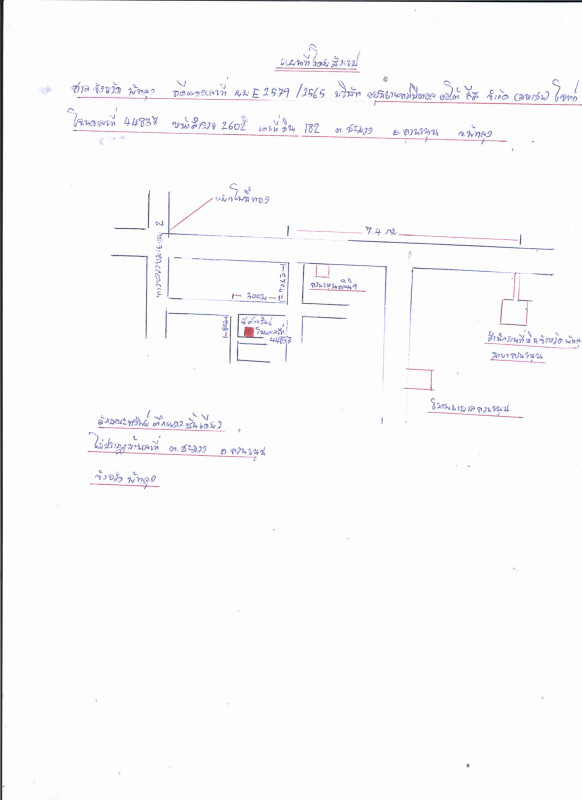 แผนที่โดยสังเขป
ศาล จังหวัด พัทลุง คดีแดงเลขที่ ผบ E 2579 / 2565 บริษัท อยุธยาแคปปิตอล ออโต้ ลีส จำกัด (มหาชน) โจทก์
โฉนดเลขที่ 44837 หน้าสำรวจ 2602 เลขที่ดิน 182 ต. ชะมวง อ. ควนขนุน จ. พัทลุง
แยกโพธิ์ทอง
7.4 กม
300 ม
ที่ตั้งทรัพย์
โฉนดเลขที่
44837
สำนักงานที่ดินจังหวัดพัทลุง
สาขาควนขนุน
โรงพยาบาลควนขนุน
ลักษณะทรัพย์ ตึกแถวชั้นเดียว
ไม่ปรากฏบ้านเลขที่ ต. ชะมวง อ ควนขนุน
จังหวัด พัทลุง